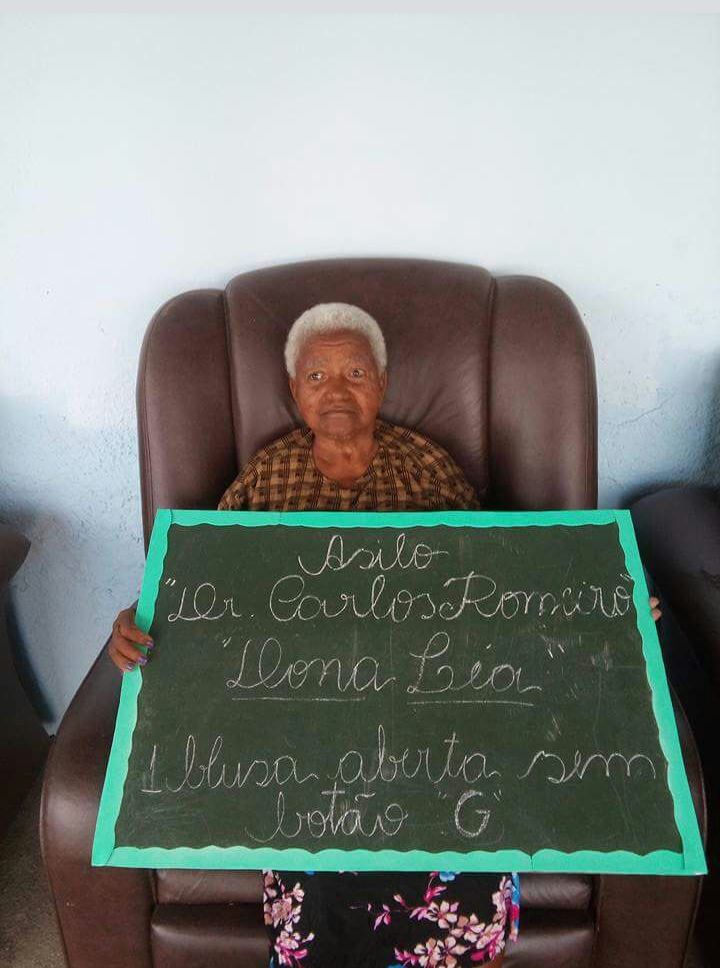 Asilo
"Dr. Carlos Romeiro"
"Dona Léa"
1 blusa aberta sem
botão "G"